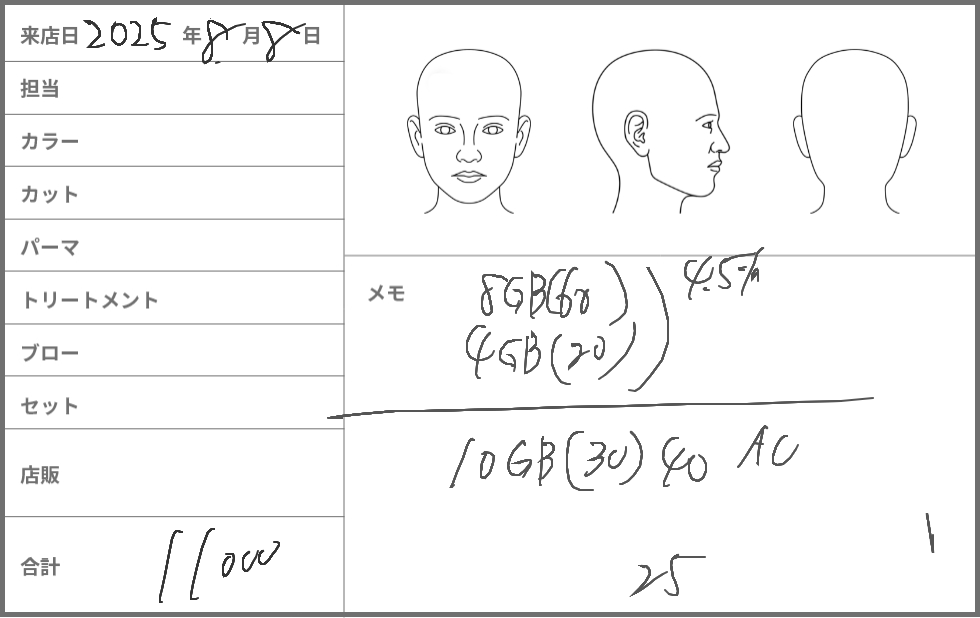 来店日 2025 年 8 月 8 日
担当
カラー
カット
パーマ
トリートメント
ブロー
セット
店販
合計 11000
メモ
8GB(60)
4GB(20)
10GB(30) 40 AC
25